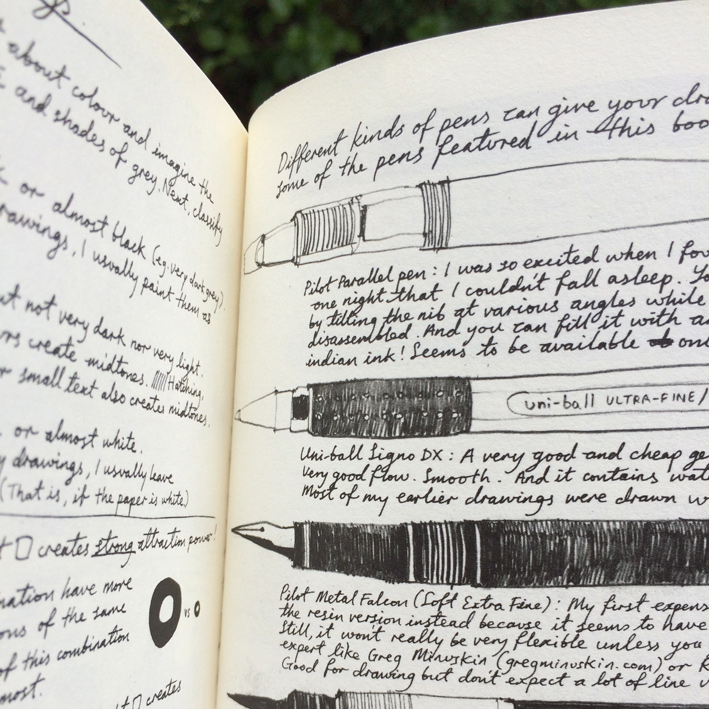 about colour and imagine the
and shades of grey. Next, classify
or almost black (eg. very dark grey).
drawings, I usually paint them as
but not very dark nor very light.
create midtones. Hatching,
or small text also creates midtones.
or almost white.
drawings, I usually leave
(That is, if the paper is white)
creates strong attraction power!
nation have more
ons of the same
of this combination
most.
creates
VS
Different kinds of pens can give your dra
some of the pens featured in this boo
Pilot Parallel pen: I was so excited when I fou
one night that I couldn't fall asleep. Yo
by tilting the nib at various angles while
disassembled. And you can fill it with an
indian ink! Seems to be available on
uni-ball ULTRA-FINE/
Uni-ball Signo DX: A very good and cheap ge
very good flow. Smooth. And it contains wat
Most of my earlier drawings were drawn w
Pilot Metal Falcon (Soft Extra Fine): My first expens
the resin version instead because it seems to have
Still, it won't really be very flexible unless you
expert like Greg Minuskin (gregminuskin.com) or R
Good for drawing but don't expect a lot of line v